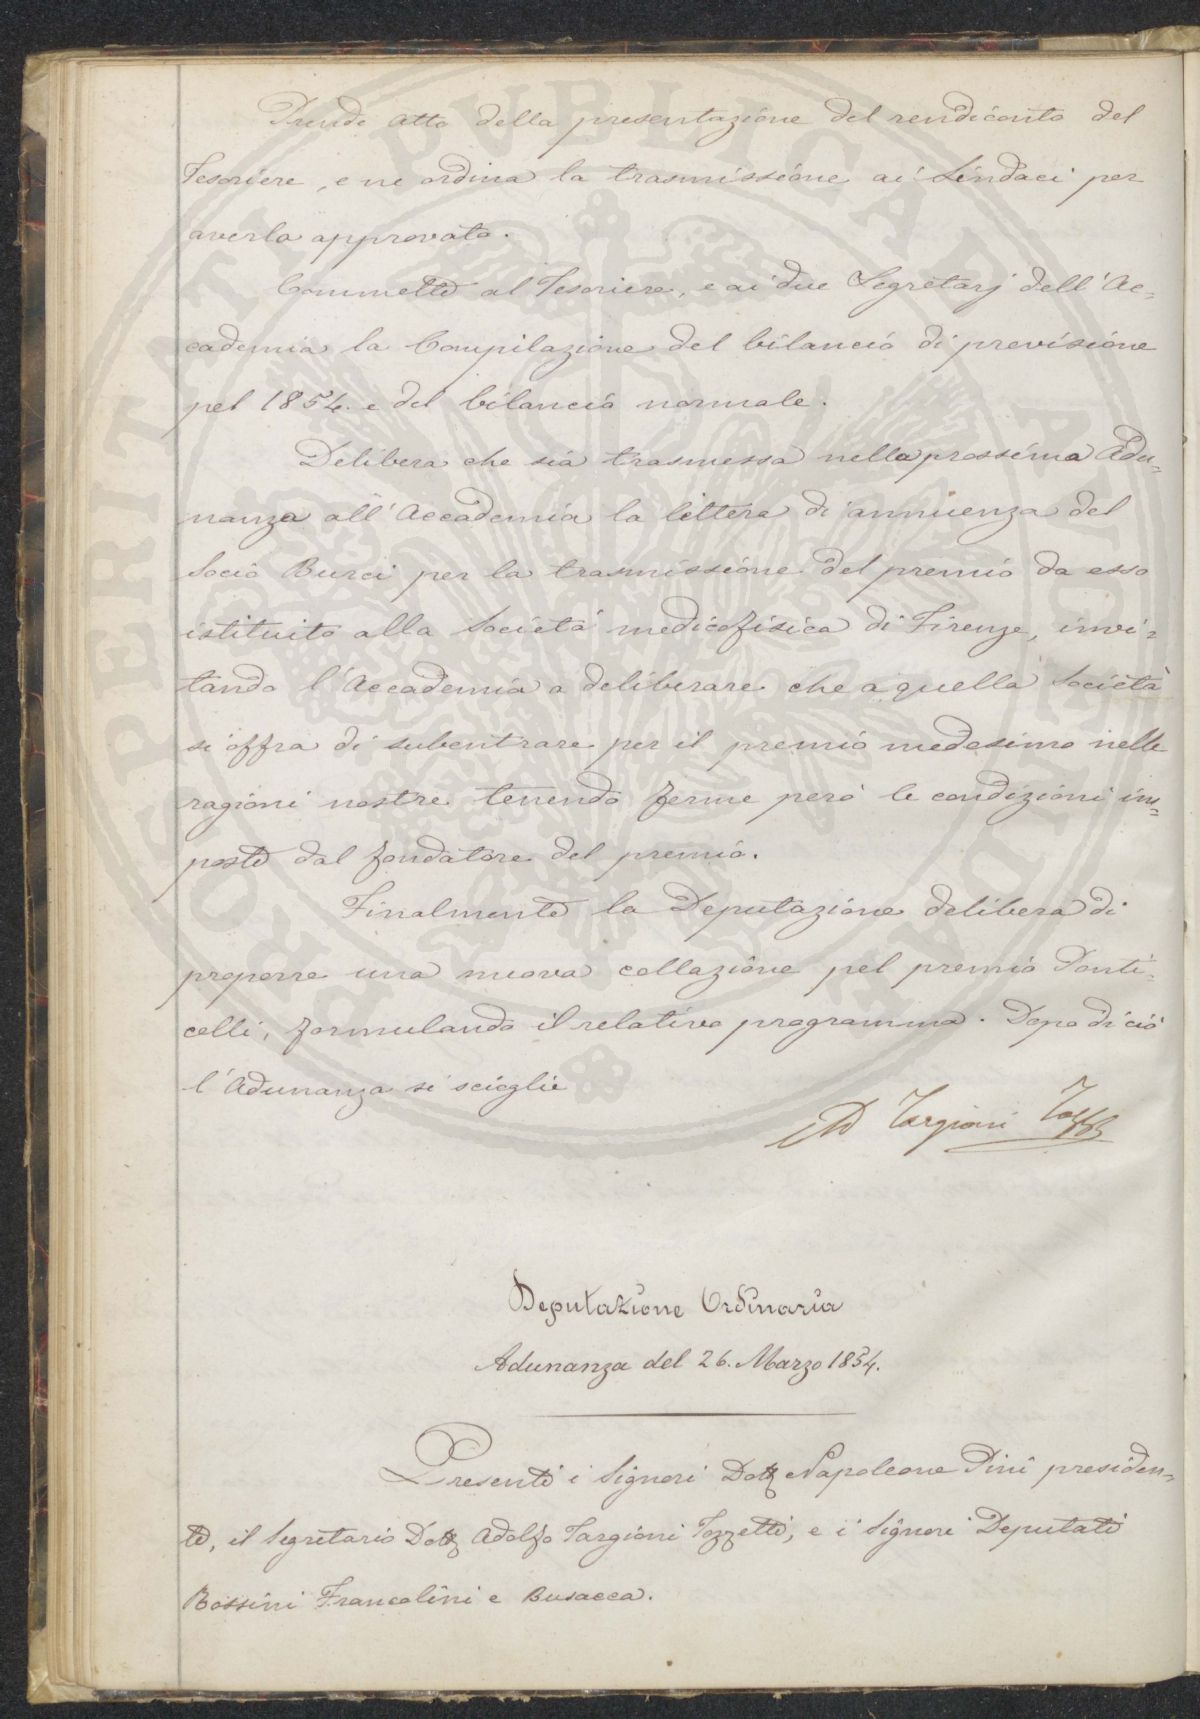 Prende atto della presentazione del rendiconto del
Tesoriere, e ne ordina la trasmissione ai Sindaci per
averlo approvato.
Commette al Tesoriere, e ai due Segretarj dell'Ac-
cademia la Compilazione del bilancio di previsione
pel 1854. e del bilancio normale.
Delibera che sia trasmessa nella prossima Adu-
nanza all'Accademia la lettera di annuenza del
Socio Burci per la trasmissione del premio da esso
istituito alla Società medicofisica di Firenze, invi-
tando l'Accademia a deliberare che a quella Società
si offra di subentrare per il premio medesimo nelle
ragioni nostre tenendo ferme però le condizioni im-
poste dal fondatore del premio.
Finalmente la Deputazione delibera di
proporre una nuova collazione pel premio Ponti-
celli, formulando il relativo programma. Dopo di ciò
l'Adunanza si scioglie
AD Targioni Tozzetti
Deputazione Ordinaria
Adunanza del 26. Marzo 1854.
Presenti i Signori Dott Napoleone Pini presiden-
te, il Segretario Dott Adolfo Targioni Tozzetti, e i Signori Deputati
Bossini Francolini e Busacca.
PROSPERITATI PVBLICAE AVGENDAE